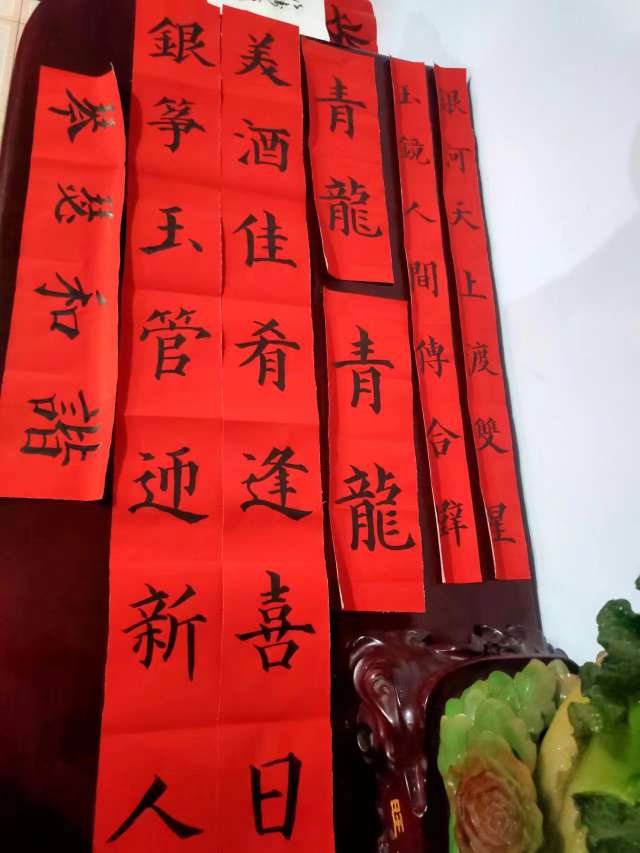 銀河天上渡雙星
玉鏡人間傳合璧
青龍
青龍
美酒佳肴逢喜日
銀筝玉管迎新人
琴瑟和諧
旺